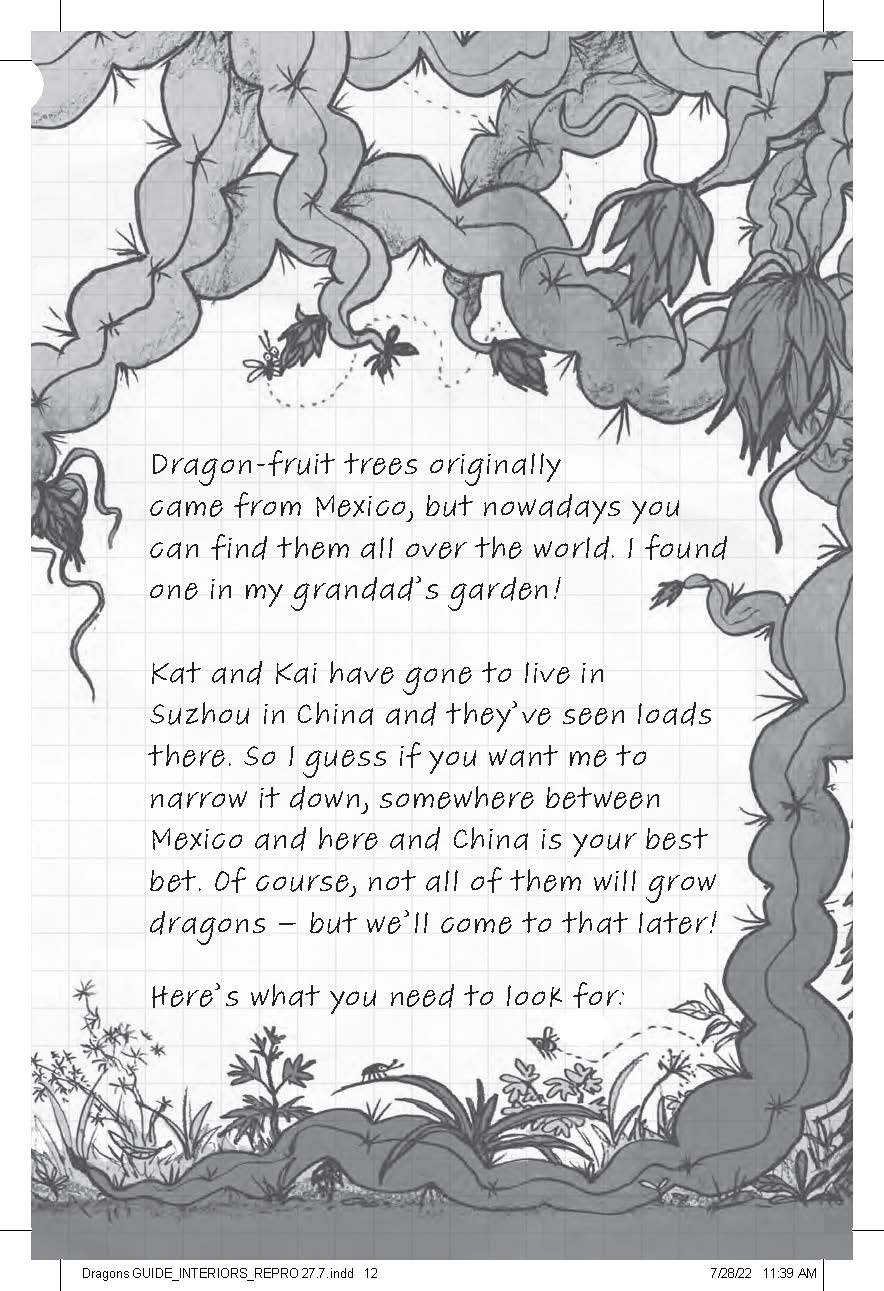 Dragon-fruit trees originally
came from Mexico, but nowadays you
can find them all over the world. I found
one in my grandad's garden!
Kat and Kai have gone to live in
Suzhou in China and they've seen loads
there. So I guess if you want me to
narrow it down, somewhere between
Mexico and here and China is your best
bet. Of course, not all of them will grow
dragons – but we'll come to that later!
Here's what you need to look for:
Dragons GUIDE_INTERIORS_REPRO 27.7.indd 12
7/28/22 11:39 AM